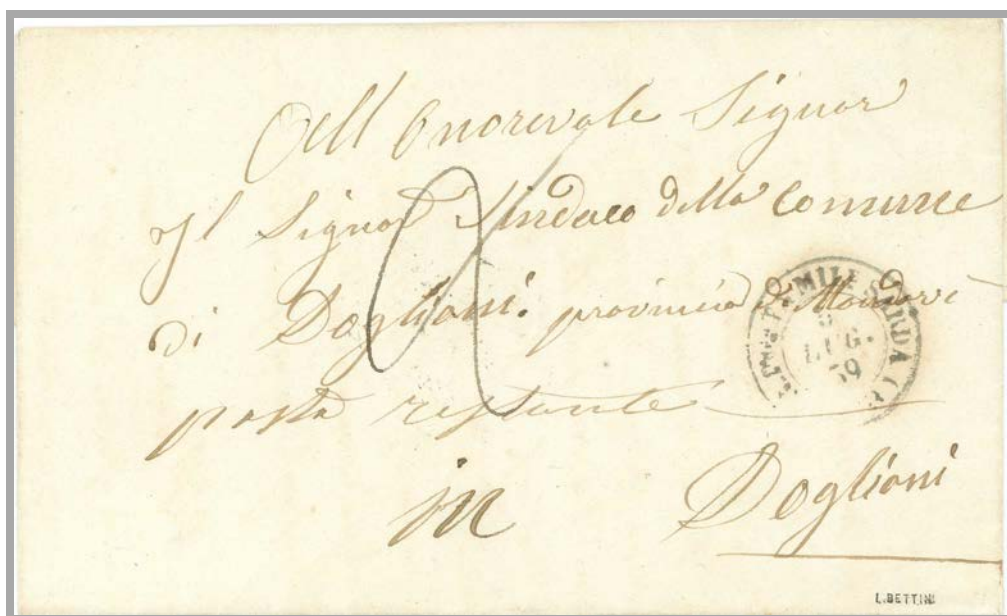 All Onorevole Signor
Il Signor Sindaco della Comune
di Doglioni. provincia di Mondovì
posta restante
in Doglioni
MILE SARDA
LUG.
59
L. BETTINI